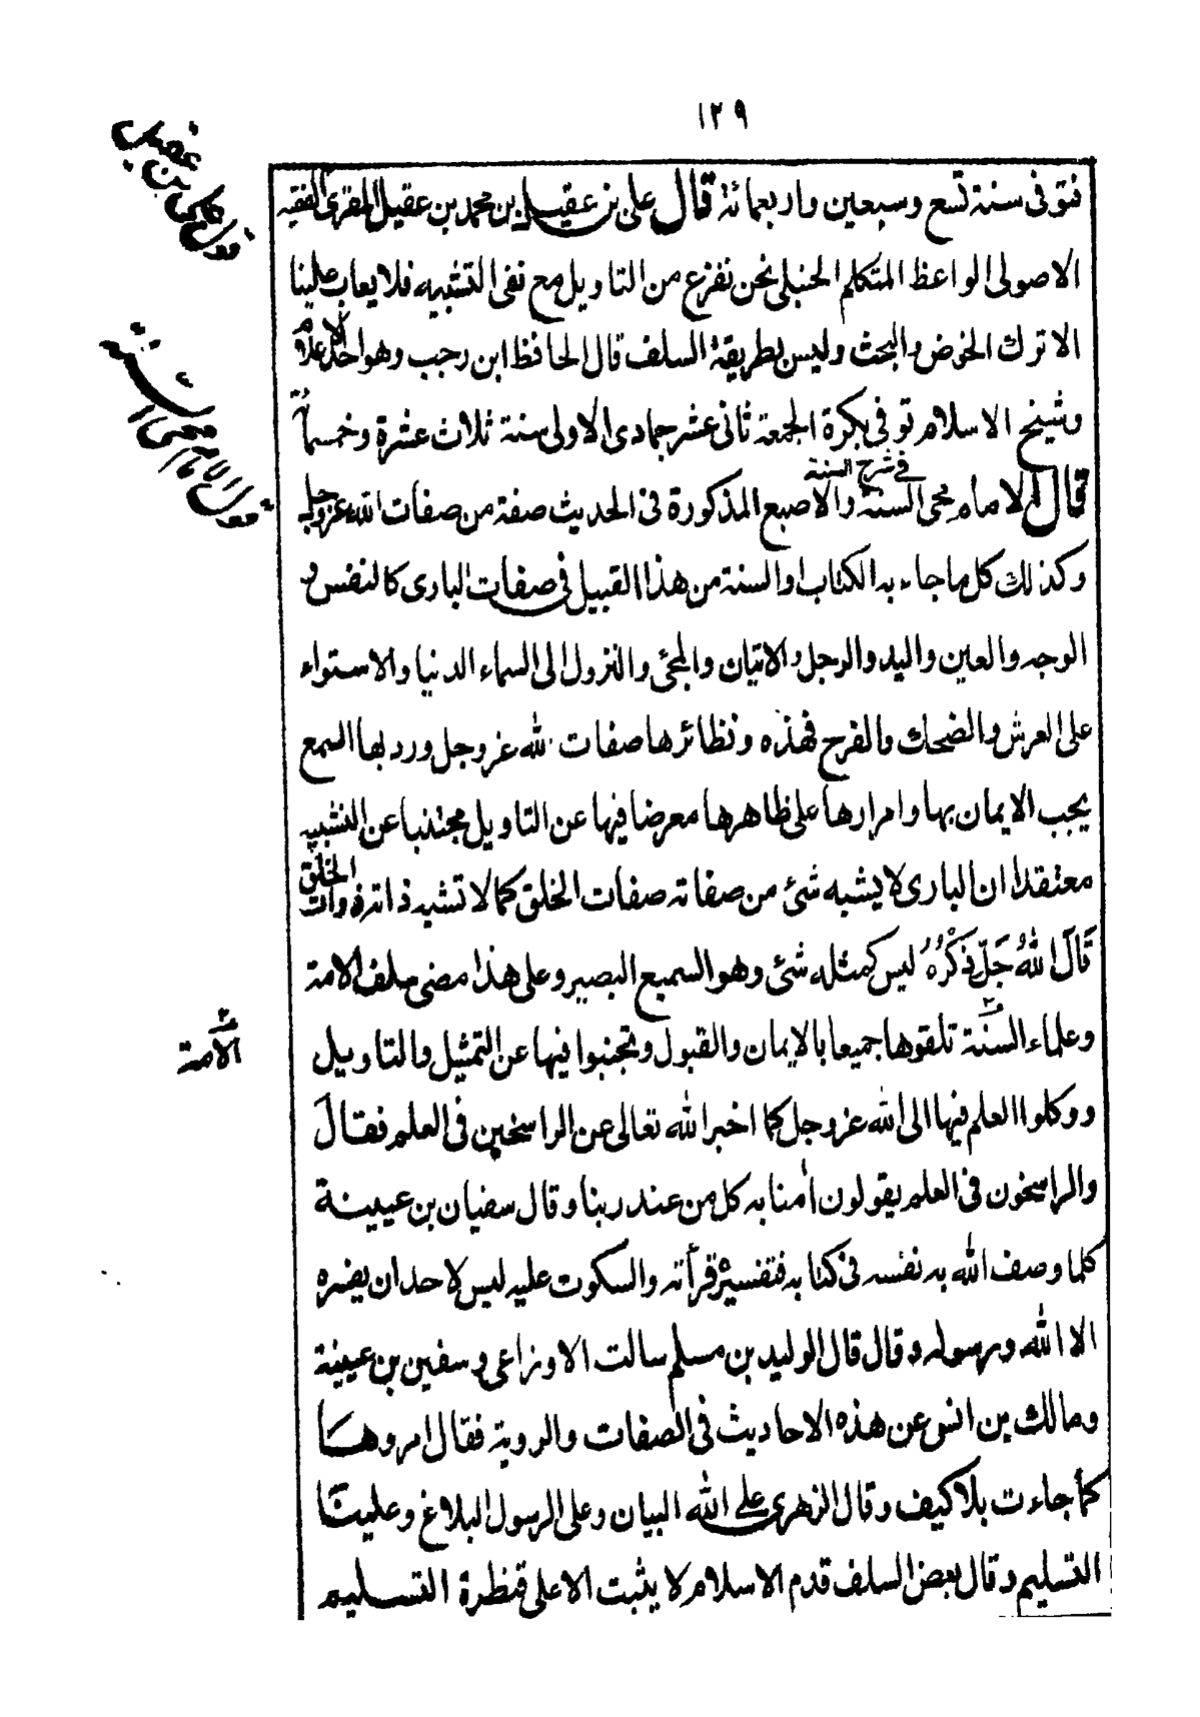 ١٢٩
فتوفى سنة تسع وسبعين واربعمائة قال على بن عقيل بن محمد بن عقيل المقرى الفقيه
الاصولى الواعظ المتكلم الحنبلى نحن نفزع من التاويل مع نفى التشبيه فلا يعاب علينا
الا ترك الخوض والبحث وليس بطريقة السلف قال الحافظ ابن رجب وهو احد الاعلام
وشيخ الاسلام توفى بكرة الجمعة ثانى عشر جمادى الاولى سنة ثلاث عشرة وخمسمائة
قال الامام محى السنة فى شرح السنة والاصبع المذكورة فى الحديث صفة من صفات الله عزوجل
وكذلك كل ما جاء به الكتاب او السنة من هذا القبيل فى صفات البارى كالنفس و
الوجه والعين واليد والرجل والاتيان والمجئ والنزول الى السماء الدنيا والاستواء
على العرش والضحك والفرح فهذه ونظائرها صفات لله عزوجل ورد بها السمع
يجب الايمان بها وامرارها على ظاهرها معرضا فيها عن التاويل مجتنبا عن التشبيه
معتقدا ان البارى لا يشبه شئ من صفاته صفات الخلق كما لا تشبه ذاته ذوات الخلق
قَالَ اللهُ جَلَّ ذِكْرُهُ ليس كمثله شئ وهو السميع البصير وعلى هذا مضى سلف الامة
وعلماء السنة تلقوها جميعا بالايمان والقبول وتجنبوا فيها عن التمثيل والتاويل
ووكلوا العلم فيها الى الله عزوجل كما اخبر الله تعالى عن الراسخين فى العلم فقال
والراسخون فى العلم يقولون اٰمنا به كل من عند ربنا وقال سفيان بن عيينة
كلما وصف الله به نفسه فى كتابه فتفسيره قرأته والسكوت عليه ليس لاحد ان يفسره
الا الله ورسوله وقال قال الوليد بن مسلم سالت الاوزاعى وسفين بن عيينة
ومالك بن انس عن هذه الاحاديث فى الصفات والروية فقال امروها
كما جاءت بلا كيف وقال الزهرى على الله البيان وعلى الرسول البلاغ وعلينا
التسليم وقال بعض السلف قدم الاسلام لا يثبت الا على قنطرة التسليم
قول على بن عقيل
قول الامام محى السنة
الامة